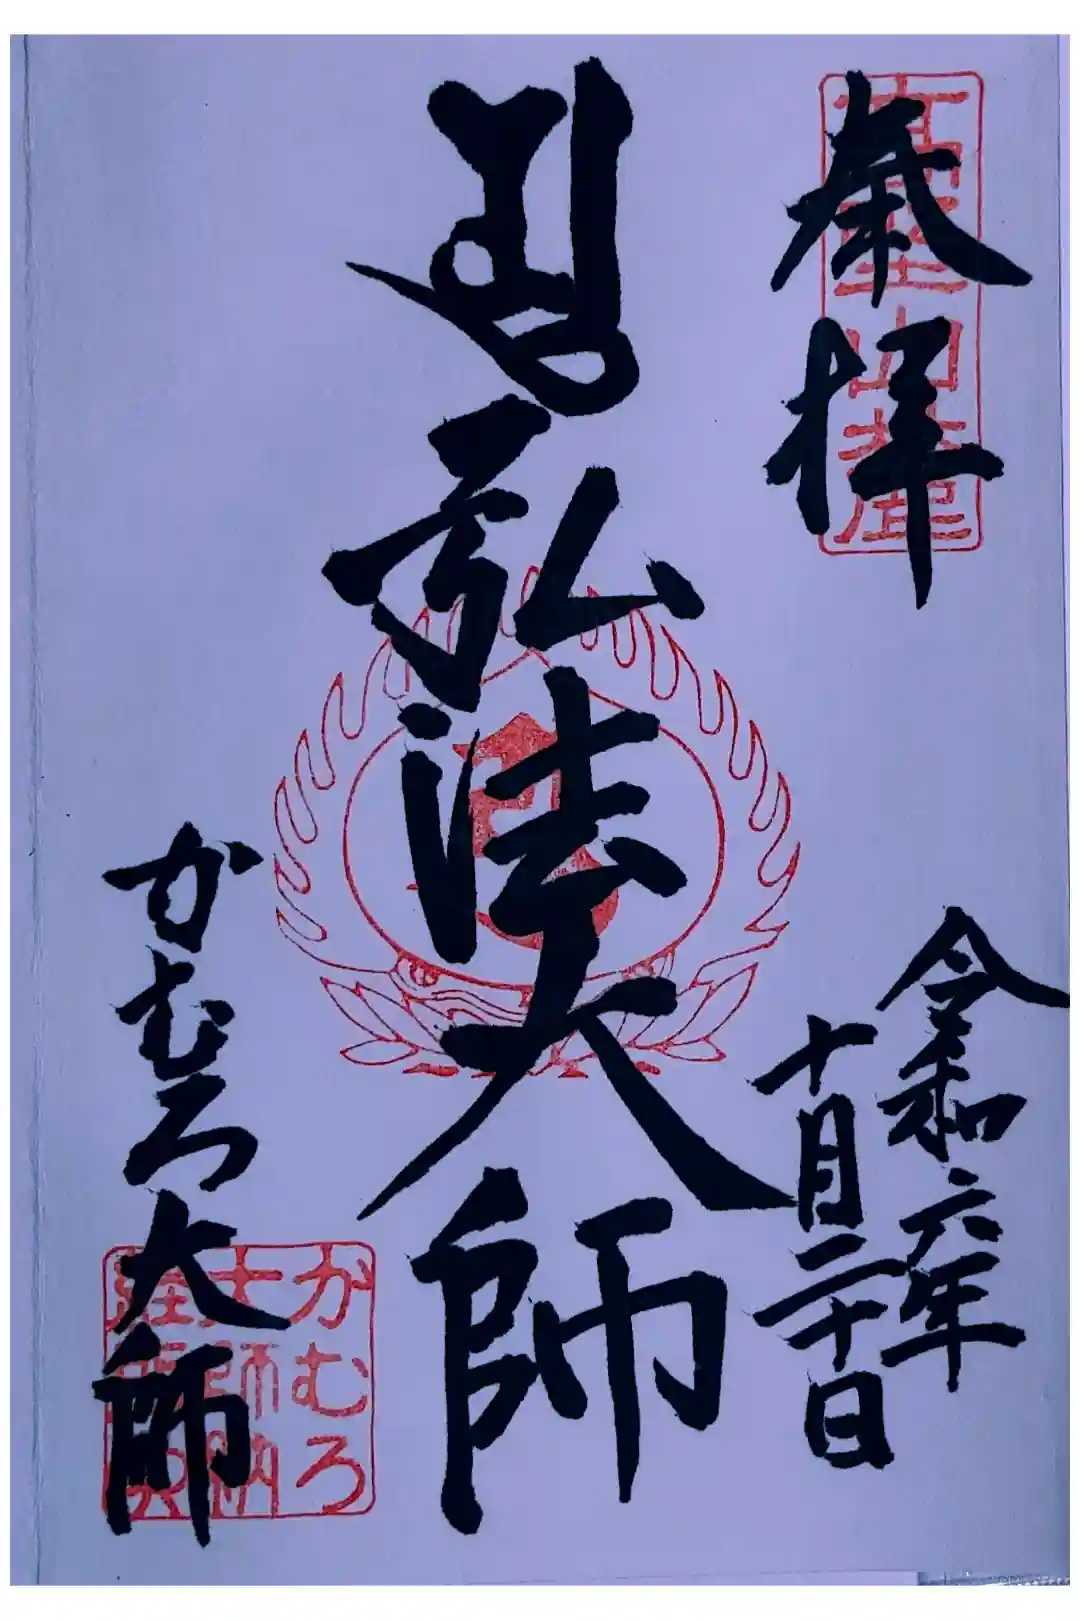 奉拝
令和六年
十月二十日
弘法大師
かむろ大師
かむろ
大師納
経